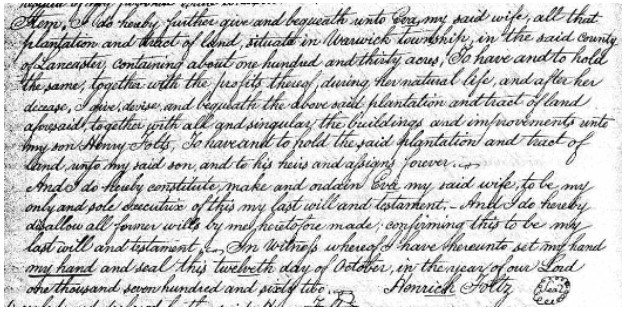 Item. I do hereby further give and bequeath unto Eva, my said wife, all that
plantation and tract of land, situate in Warwick township, in the said County
of Lancaster, containing about one hundred and thirty acres, To have and to hold
the same, together with the profits thereof, during her natural life, and after her
decease, I give, devise, and bequeath the above said plantation and tract of land
aforesaid, together with all and singular the buildings and improvements unto
my son Henry Foltz, To have and to hold the said plantation and tract of
land unto my said son, and to his heirs and assigns forever.
And I do hereby constitute, make and ordain Eva my said wife, to be my
only and sole executrix of this my last will and testament, - And I do hereby
disallow all former wills by me heretofore made; confirming this to be my
last will and testament, In Witness whereof I have hereunto set my hand
my hand and seal this twelveth day of October, in the year of our Lord
one thousand seven hundred and sixty two. Henrich Foltz Seal